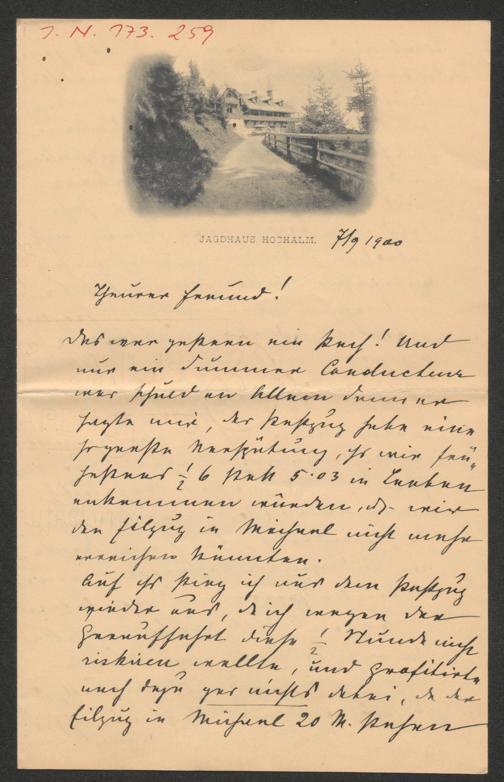 J. N. 173. 259
JAGDHAUS HOCHALM. 7/9 1900
Theurer Freund!
Das war gestern ein Pech! Und
nur ein dummer Conducteur
war schuld an Allem denn er
sagte mir, der Postzug habe eine
so große Verspätung, dß wir frü-
hestens ½ 6 statt 5·03 in Leoben
ankommen würden, dß wir
den Eilzug in Michael nicht mehr
erreichen könnten.
Auf dß stieg ich aus dem Postzug
wieder aus, da ich wegen der
diese ½ Stunde nicht
riskiren wollte, und profitirte
nach dazu gar nichts dabei, da der
Eilzug in Michael 20 M. stehen